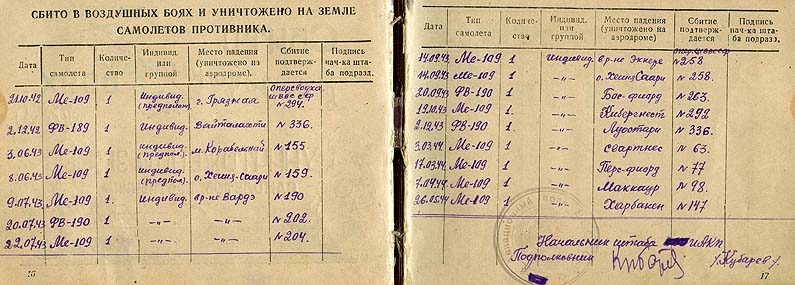 СБИТО В ВОЗДУШНЫХ БОЯХ И УНИЧТОЖЕНО НА ЗЕМЛЕ
САМОЛЕТОВ ПРОТИВНИКА.
Дата Тип самолета Количество Индивид. или группой Место падения (уничтожено на аэродроме). Сбитие подтверждается Подпись нач-ка штаба подразд.
Оперсводка ШВВС СФ
21.10.42 Ме-109 1 Индивид. (предполож) г. Грязная №294.
2.12.42 ФВ-189 1 Индивид. Вайталахти №336.
3.06.43 Ме-109 1 индивид. (предпол.) м. Корабельный №155.
8.06.43 Ме-109 1 индивид. (предпол.) о. Хейнь-Саари №159.
9.07.43 Ме-109 1 Индивид. вр-не Вардэ №190
20.07.43 ФВ-190 1 -"- -"- №202.
22.07.43 Ме-109 1 -"- -"- №204.
16
Дата Тип самолета Количество Индивид. или группой Место падения (уничтожено на аэродроме) Сбитие подтверждается Подпись нач-ка штаба подразд.
опер.ШВВС СФ
14.09.43 Ме-109 1 Индивид. вр-не Эккере №258
14.09.43 Ме-109 1 -"- о. Хейнь Саари №258.
20.09.43 ФВ-190 1 -"- Бос-фиорд №263.
19.10.43 Ме-109 1 -"- Кибернест №292
2.12.43 ФВ-190 1 -"- Луостари №336.
3.03.44 Ме-109 1. -"- Свартнес №63.
17.03.44 Ме-109 1 -"- Перс-фиорд №77
7.04.44 Ме-109 1 -"- Маккаур №98.
26.05.44 Ме-109 1 -"- Харбакен №147
Начальник штаба ИАКП
Подполковник /Кубарев/.
17